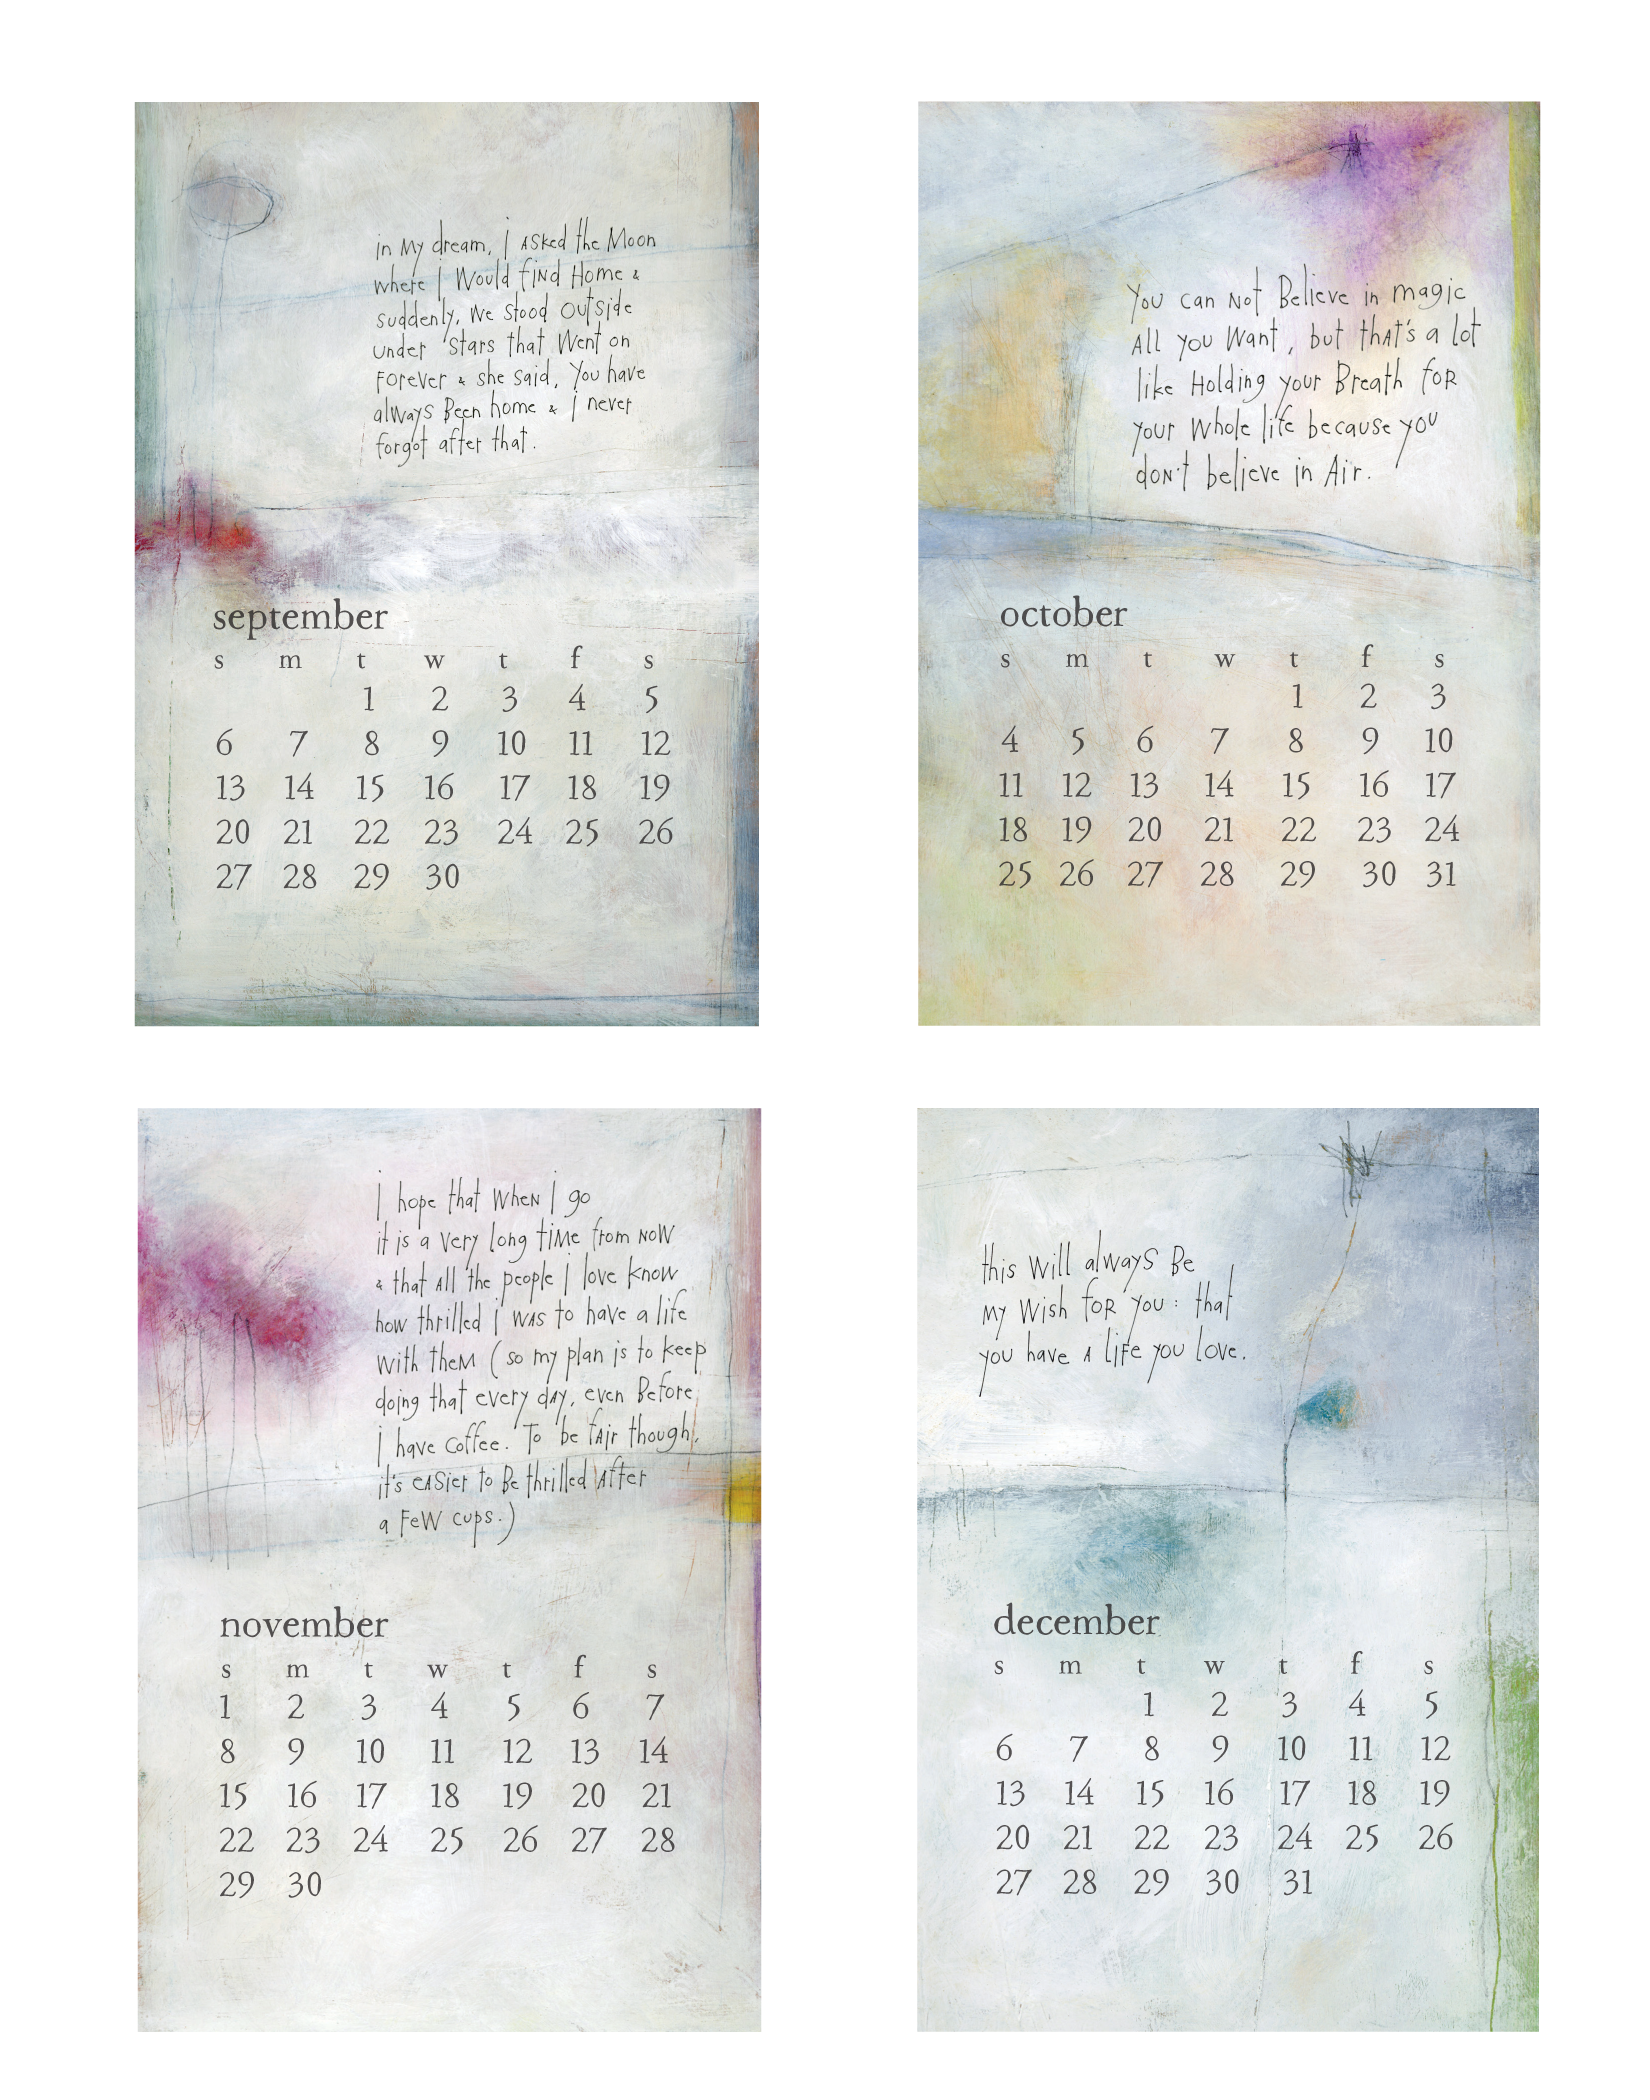 in my dream, i asked the moon
where i would find home &
suddenly, we stood outside
under stars that went on
forever & she said, you have
always been home & i never
forgot after that.
september
s m t w t f s
1 2 3 4 5
6 7 8 9 10 11 12
13 14 15 16 17 18 19
20 21 22 23 24 25 26
27 28 29 30
you can not believe in magic
all you want, but that's a lot
like holding your breath for
your whole life because you
don't believe in air.
october
s m t w t f s
1 2 3
4 5 6 7 8 9 10
11 12 13 14 15 16 17
18 19 20 21 22 23 24
25 26 27 28 29 30 31
i hope that when i go
it is a very long time from now
& that all the people i love know
how thrilled i was to have a life
with them (so my plan is to keep
doing that every day, even before
i have coffee. To be fair though,
it's easier to be thrilled after
a few cups.)
november
s m t w t f s
1 2 3 4 5 6 7
8 9 10 11 12 13 14
15 16 17 18 19 20 21
22 23 24 25 26 27 28
29 30
this will always be
my wish for you: that
you have a life you love.
december
s m t w t f s
1 2 3 4 5
6 7 8 9 10 11 12
13 14 15 16 17 18 19
20 21 22 23 24 25 26
27 28 29 30 31